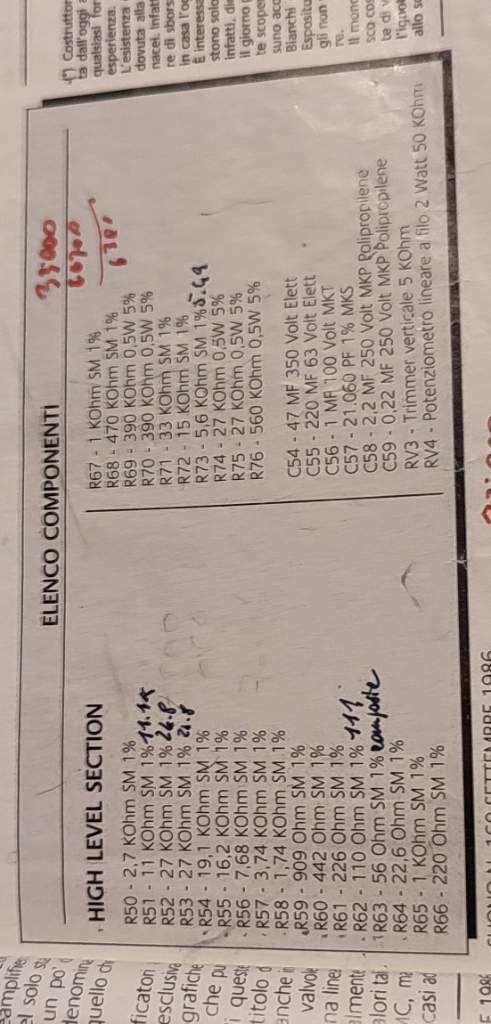 ELENCO COMPONENTI
HIGH LEVEL SECTION
R50 - 2,7 KOhm SM 1%
R51 - 11 KOhm SM 1% 11.1k
R52 - 27 KOhm SM 1% 26.8
R53 - 27 KOhm SM 1% 21.8
R54 - 19,1 KOhm SM 1%
R55 - 16,2 KOhm SM 1%
R56 - 7,68 KOhm SM 1%
R57 - 3,74 KOhm SM 1%
R58 - 1,74 KOhm SM 1%
R59 - 909 Ohm SM 1%
R60 - 442 Ohm SM 1%
R61 - 226 Ohm SM 1%
R62 - 110 Ohm SM 1% 111
R63 - 56 Ohm SM 1%
R64 - 22,6 Ohm SM 1%
R65 - 1 KOhm SM 1%
R66 - 220 Ohm SM 1%
R67 - 1 KOhm SM 1%
R68 - 470 KOhm SM 1%
R69 - 390 KOhm 0,5W 5%
R70 - 390 KOhm 0,5W 5%
R71 - 33 KOhm SM 1%
R72 - 15 KOhm SM 1%
R73 - 5,6 KOhm SM 1% 5.49
R74 - 27 KOhm 0,5W 5%
R75 - 27 KOhm 0,5W 5%
R76 - 560 KOhm 0,5W 5%
C54 - 47 MF 350 Volt Elett
C55 - 220 MF 63 Volt Elett
C56 - 1 MF 100 Volt MKT
C57 - 21.060 PF 1% MKS
C58 - 2,2 MF 250 Volt MKP Polipropilene
C59 - 0,22 MF 250 Volt MKP Polipropilene
RV3 - Trimmer verticale 5 KOhm
RV4 - Potenziometro lineare a filo 2 Watt 50 KOhm
(*) Costruttor
ta dall'oggi a
qualsiasi for
esperienza
L'esistenza
dovuta alla
nacei. Infatt
re di sbors
in casa l'og
È interessa
stono solo
infatti, di
il giorno
te scoper
suno acc
Bianchi
Esposito
gli non
re.
Il mon
sco cos
te di v
allo s
amplifie
el solo sta
un po'
denomina
quello ch
ficatori
esclusiva
grafiche
che pu
i queste
titolo d
anche i
valvole
na line
almente
alori tal
MC, ma
casi ad
SUONO N. 160 SETTEMBRE 1986
E 1986